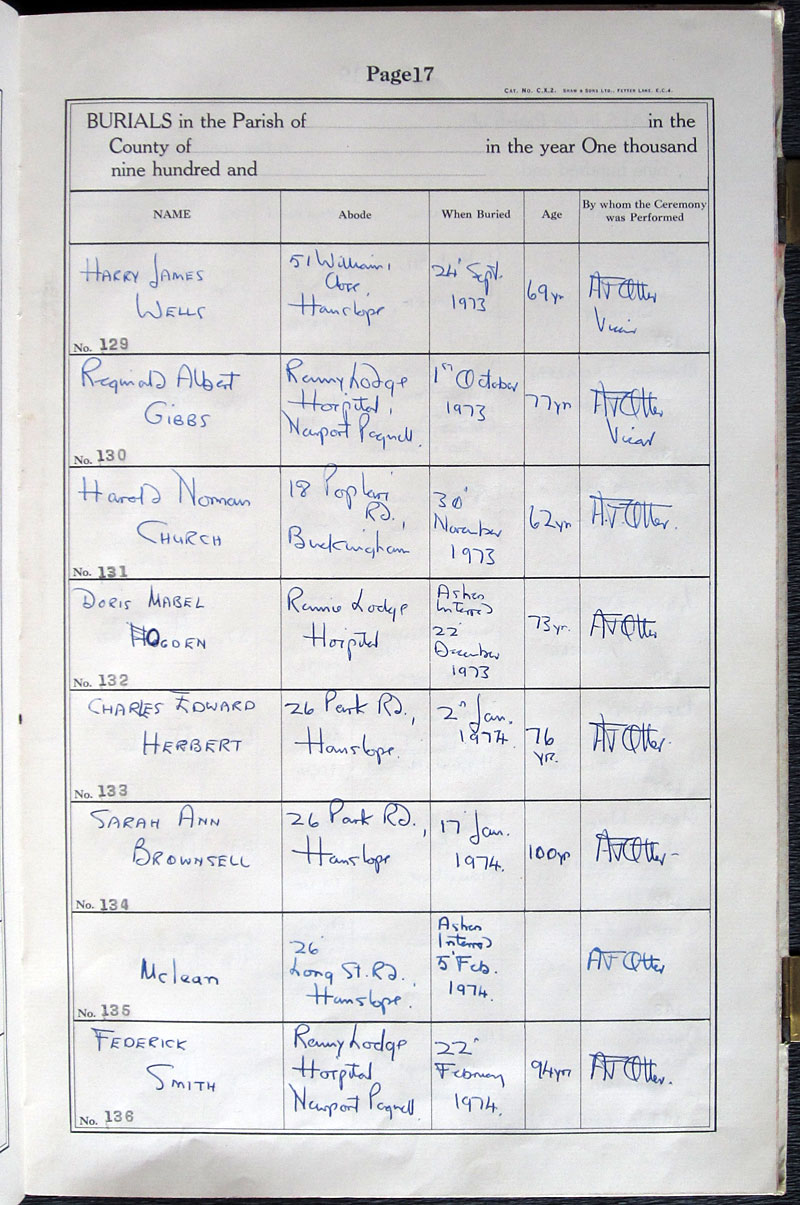 Page17
CAT. NO. C.X.2. SHAW & SONS LTD., FETTER LANE, E.C.4.
BURIALS in the Parish of in the
County of in the year One thousand
nine hundred and
NAME Abode When Buried Age By whom the Ceremony was Performed
HARRY JAMES
WELLS
No. 129
51 Williams
Close,
Hanslope
24' Sept.
1973
69yr
AJ Otter
Vicar
Reginald Albert
GIBBS
No. 130
Renny Lodge
Hospital,
Newport Pagnell.
1st October
1973
77yr
AJ Otter
Vicar
Harold Norman
CHURCH
No. 131
18 Rd.,
Buckingham
30'
November
1973
62yr
A.J. Otter.
DORIS MABEL
HOGDEN
No. 132
Rennie Lodge
Hospital
Ashes
Interred
22'
December
1973
73yr.
AJ Otter
CHARLES EDWARD
HERBERT
No. 133
26 Park Rd.,
Hanslope.
2" Jan.
1974.
76
YR.
AJ Otter.
SARAH ANN
BROWNSELL
No. 134
26 Park Rd.,
Hanslope
17' Jan.
1974.
100yr
AJ Otter -
Mclean
No. 135
26
Long St. Rd.,
Hanslope.
Ashes
Interred
5' Feb.
1974.
AJ Otter
FEDERICK
SMITH
No. 136
Renny Lodge
Hospital
Newport Pagnell.
22"
February
1974.
94yr
AJ Otter.